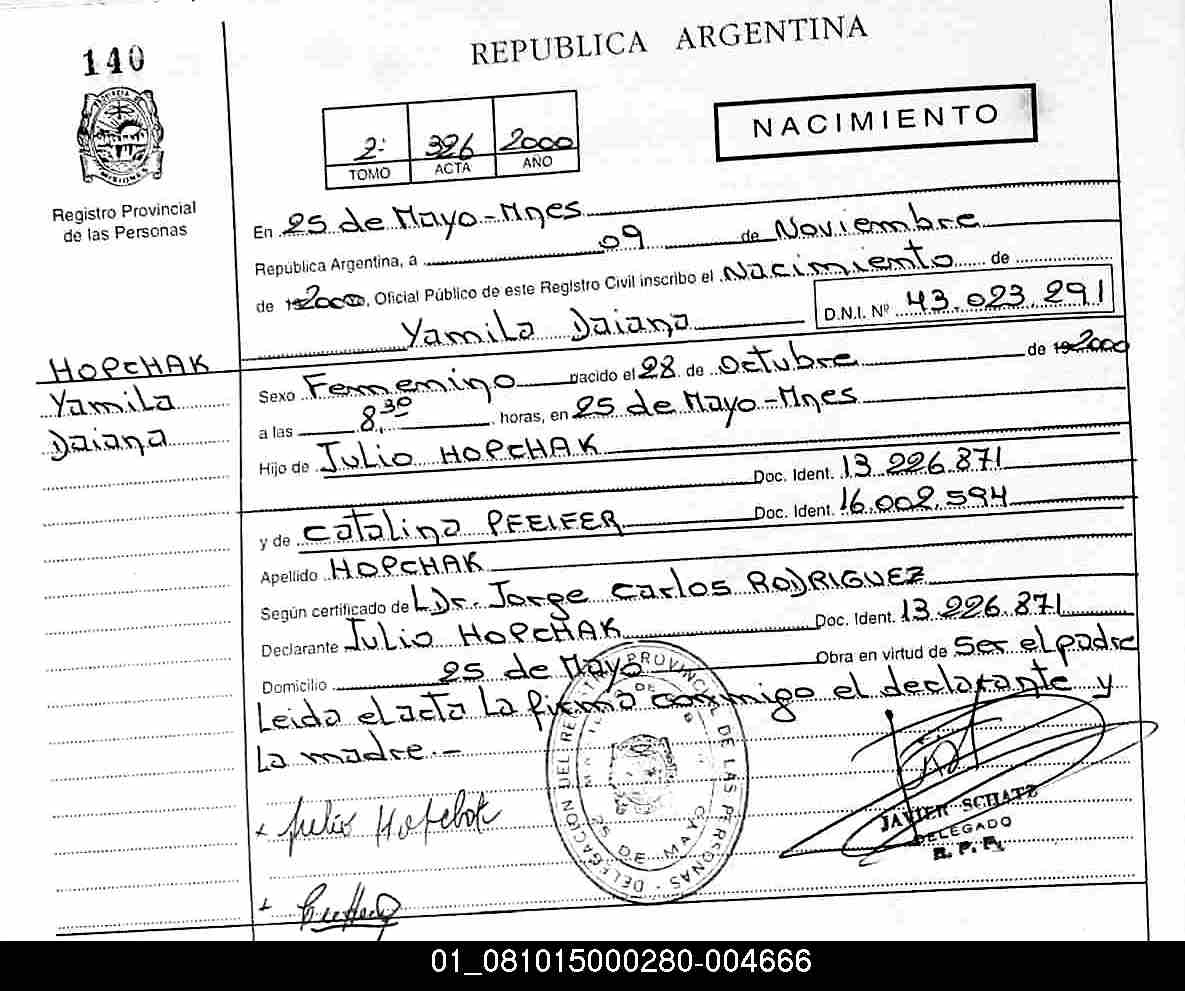 140
REPUBLICA ARGENTINA
2: 326 2000
TOMO ACTA AÑO
NACIMIENTO
MISIONES
Registro Provincial
de las Personas
En 25 de Mayo-Mnes
República Argentina, a 09 de Noviembre
de 2000, Oficial Público de este Registro Civil inscribo el Nacimiento de
Yamila Daiana D.N.I. Nº 43.023.291
HOPCHAK
Yamila
Daiana
Sexo Femenino nacido el 28 de Octubre de 2000
a las 8,30 horas, en 25 de Mayo-Mnes
Hijo de Julio HOPCHAK
Doc. Ident. 13.226.871
y de Catalina PFEIFER Doc. Ident. 16.002.594
Apellido HOPCHAK
Según certificado de Dr. Jorge Carlos RODRIGUEZ
Declarante Julio HOPCHAK Doc. Ident. 13.226.871
Domicilio 25 de Mayo Obra en virtud de Ser el padre
Leida el acta la firma conmigo el declarante y
la madre.-
DELEGACION DEL REGISTRO PROVINCIAL DE LAS PERSONAS
25 DE MAYO
Julio Hopchak
JAVIER SCHATZ
DELEGADO
R. P. P.
01_081015000280-004666